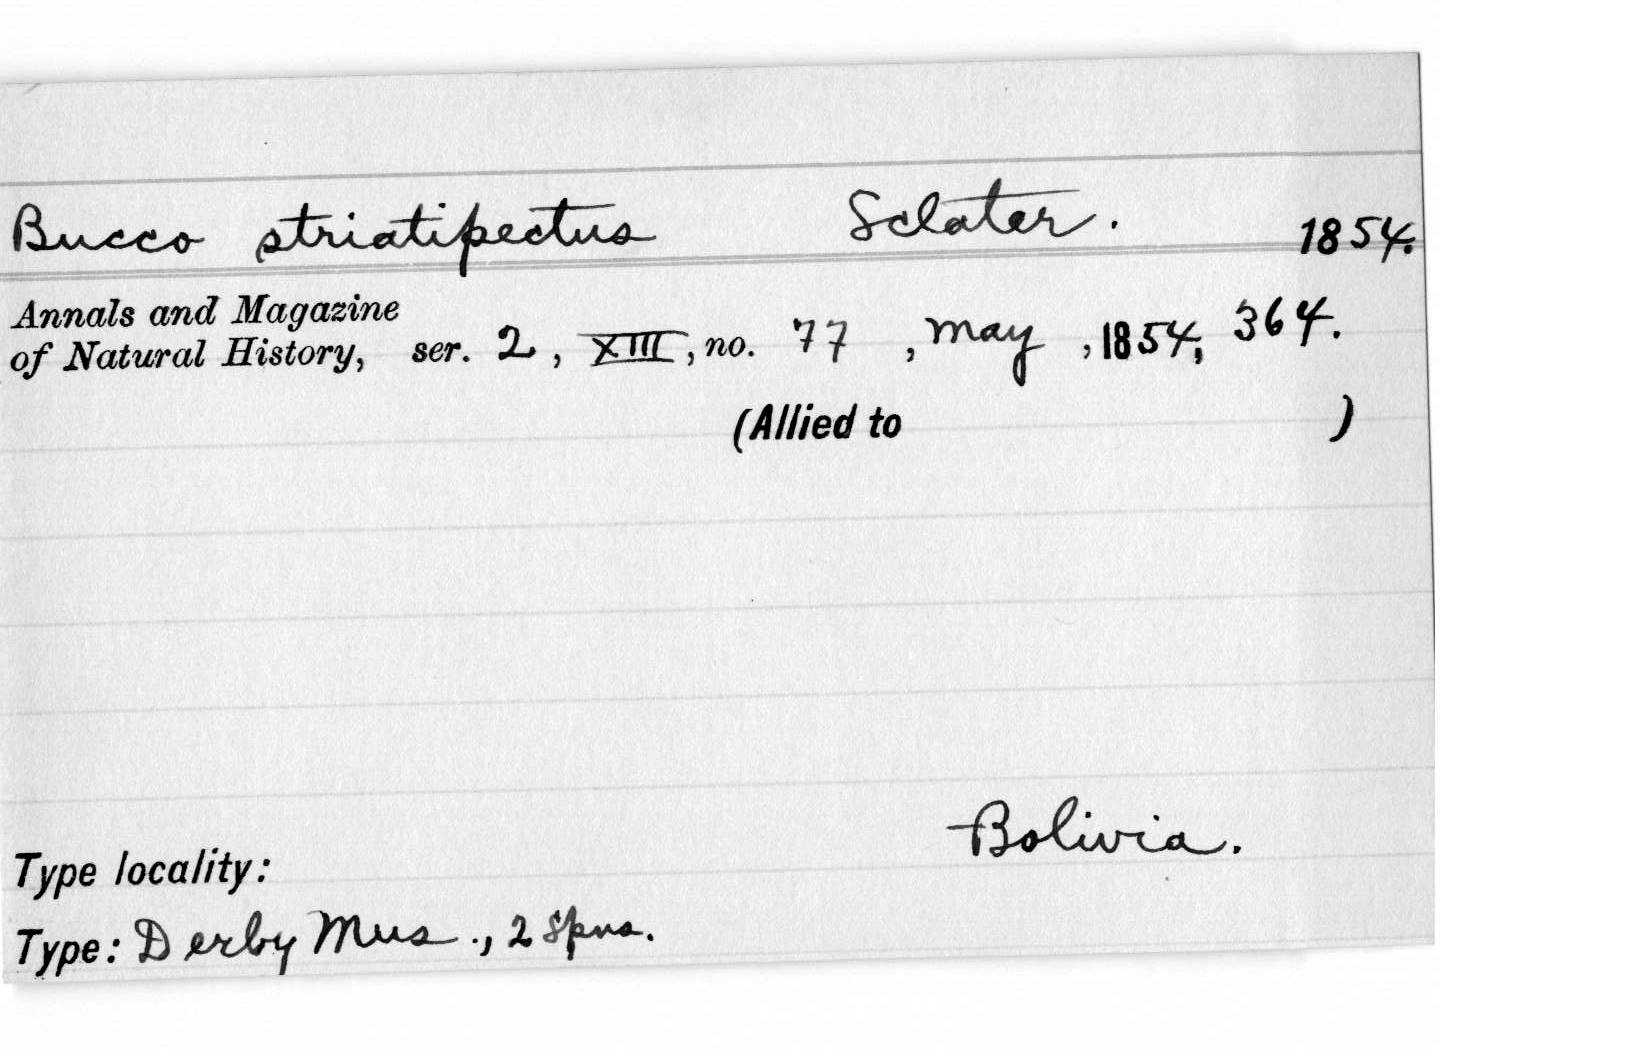 Bucco striatipectus Sclater. 1854.
Annals and Magazine
of Natural History, ser. 2, XIII, no. 77, May, 1854, 364.
(Allied to )
Bolivia.
Type locality:
Type: Derby Mus., 2 spns.